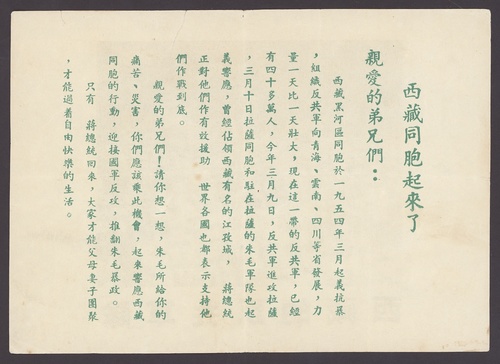 西藏同胞起來了
親愛的弟兄們：
西藏黑河區同胞於一九五四年三月起義抗暴
，組織反共軍向青海、雲南、四川等省發展，力
量一天比一天壯大，現在這一帶的反共軍，已經
有四十多萬人，今年三月九日，反共軍進攻拉薩
，三月十日拉薩同胞和駐在拉薩的朱毛軍隊也起
義響應，曾經佔領西藏有名的江孜城，　蔣總統
正對他們作有效援助　世界各國也都表示支持他
們作戰到底。
親愛的弟兄們！請你想一想，朱毛所給你的
痛苦、災害，你們應該乘此機會，起來響應西藏
同胞的行動，迎接國軍反攻，推翻朱毛暴政。
只有　蔣總統回來，大家才能父母妻子團聚
，才能過着自由快樂的生活。